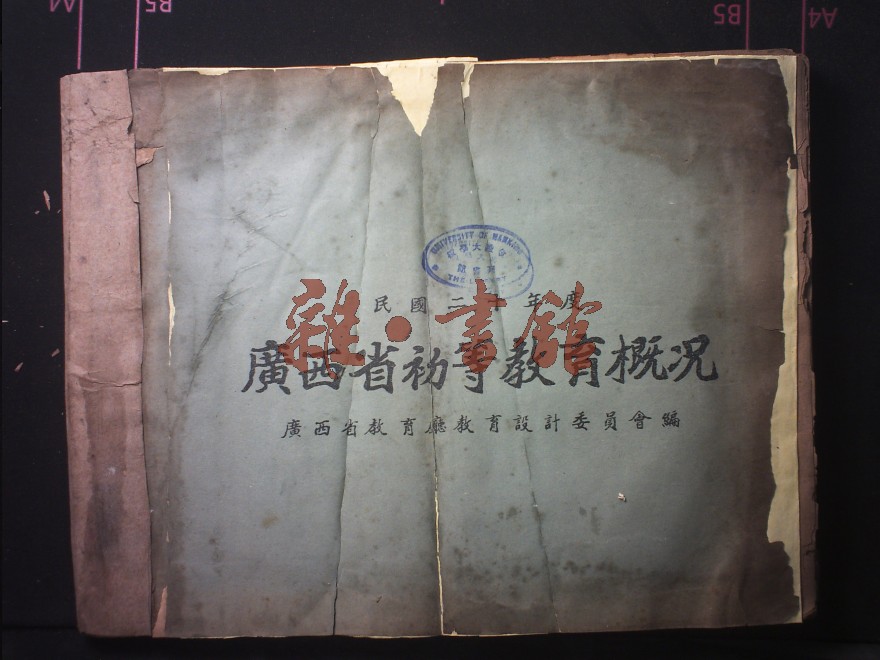 A4
B5
B5
A4
UNIVERSITY OF NANKING
THE LIBRARY
民國二 年度
雜·書館
廣西省初等教育概况
廣西省教育廳教育設計委員會編